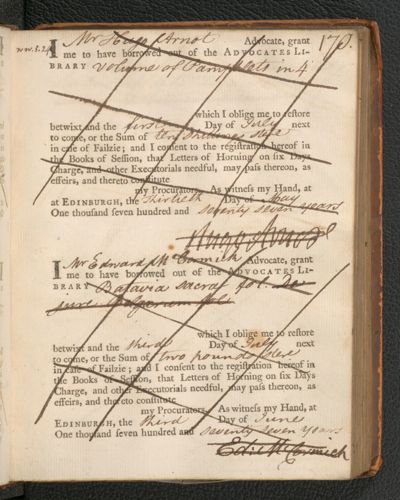 170.
ww.3.24
I Mr Hugo Arnot Advocate, grant
me to have borrowed out of the ADVOCATES LI-
BRARY Volume of Pamphlets in 4
which I oblige me to restore
betwixt and the first Day of July next
to come, or the Sum of ten shillings
in case of Failzie; and I consent to the registration hereof in
the Books of Session, that Letters of Horning on six Days
Charge, and other Executorials needful, may pass thereon, as
effeirs, and thereto constitute
my Procurators. As witness my Hand, at
at EDINBURGH, the thirtieth Day of May
One thousand seven hundred and seventy seven years
Hugo Arnot
I Mr Edward McCormick Advocate, grant
me to have borrowed out of the ADVOCATES LI-
BRARY Batavia sacra fol. De
jure
which I oblige me to restore
betwixt and the third Day of July next
to come, or the Sum of two pounds
in case of Failzie; and I consent to the registration hereof in
the Books of Session, that Letters of Horning on six Days
Charge, and other Executorials needful, may pass thereon, as
effeirs, and thereto constitute
my Procurators. As witness my Hand, at
EDINBURGH, the third Day of June
One thousand seven hundred and seventy seven years
Edw. McCormick